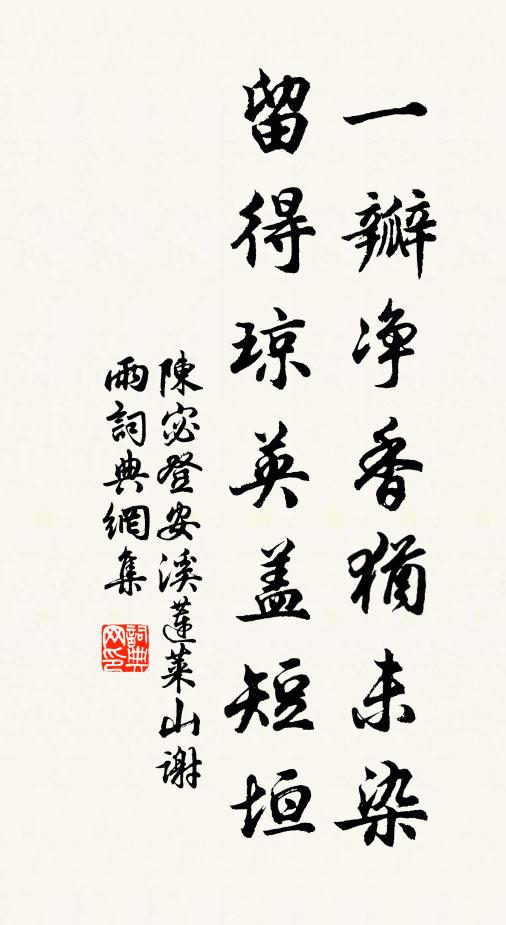 一瓣净香猶未染
留得琼英盖短垣
陳宓登安溪蓬萊山謝
雨詞典網集
詞典
网印